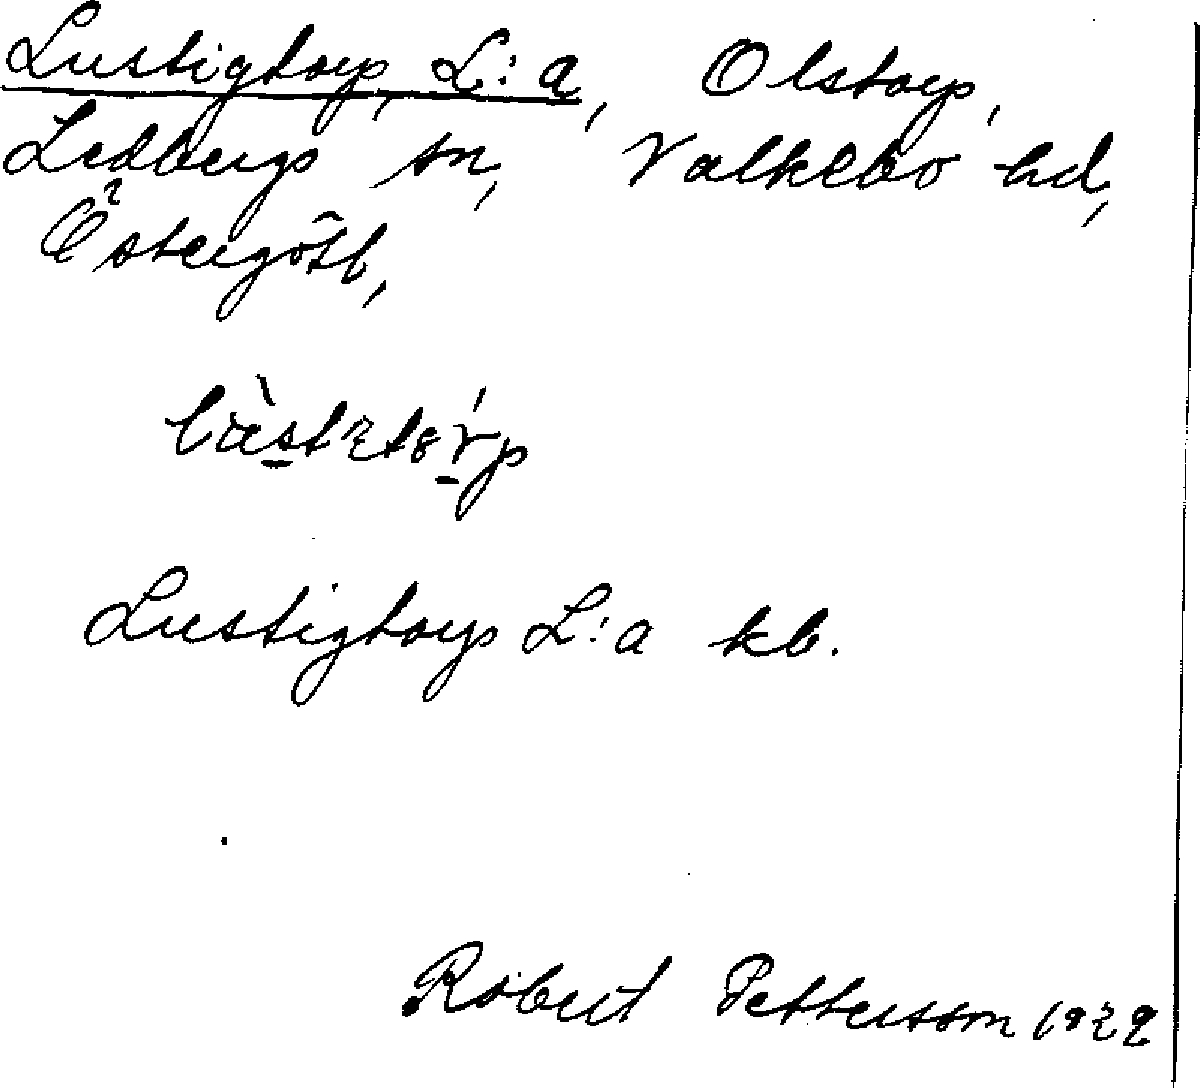 Lustigtorp, L:a, Olstorp,
Ledbergs sn, Valkebo hd,
Östergötl,
Lustigtorp L:a kb.
Robert Pettersson 1929